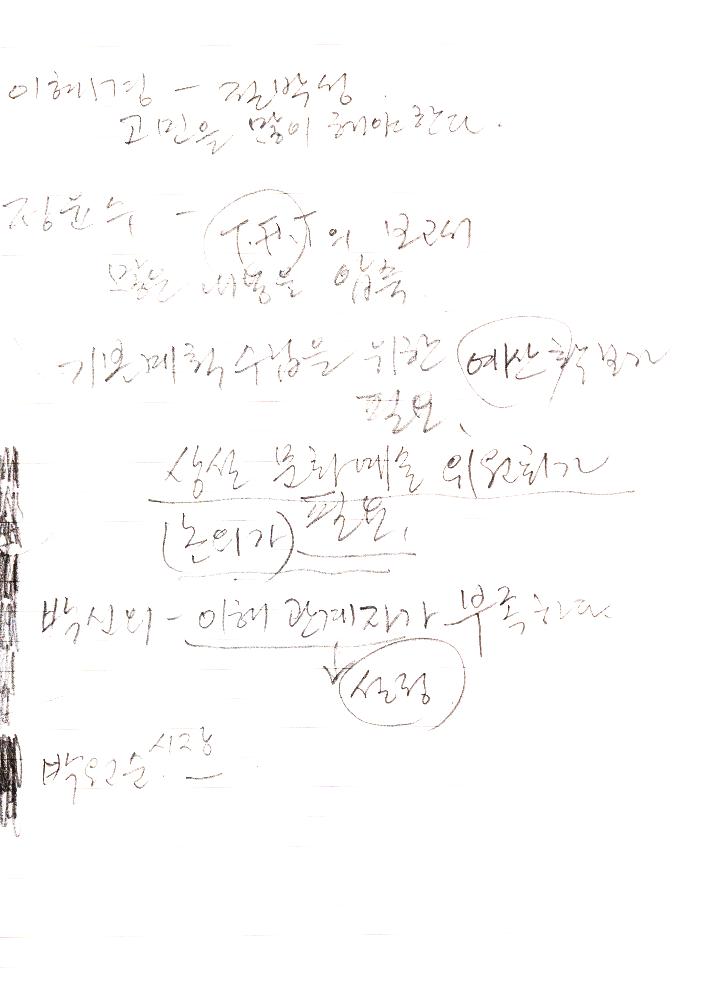 이혜경 - 절박성.
고민을 많이 해야한다.
정윤수 - T.F.T의 보고서
많은 내용을 압축.
기본계획수립을 위한 예산확보가
필요.
상설 문화예술 위원회가
(논의가) 필요.
박신의 - 이해 관계자가 부족하다
↓
설정
박원순 시장